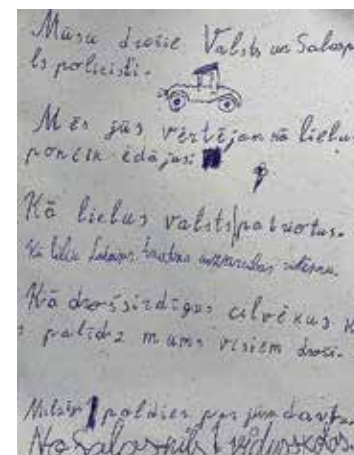 Mūsu drošie Valsts un Salasp
ls policisti.
Mēs jūs vērtējam kā lielu
pončik ēdājus:
Kā lielus valsts patriotus.
Kā lielu
Kā drošsirdīgus cilvēkus k
s palīdz mums visiem droši.
Milzīgs paldies par jūsu darbu.
No Salaspils 1 vidusskolas